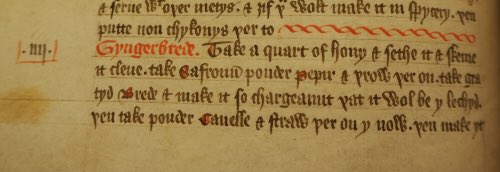 & serve w^t over metys. & yif y^u wolt make it in spycery. yen
putte non chykonys yer to
.iiij. Gyngerbrede. Take a quart of hony & sethe it & skeme
it clene. take Safroun pouder pepir & yrow yer on. take gra
tyd Brede & make it so chargeaunt yat it wol be y lechyd.
yen take pouder Canelle & straw yer on y now. yen make yt